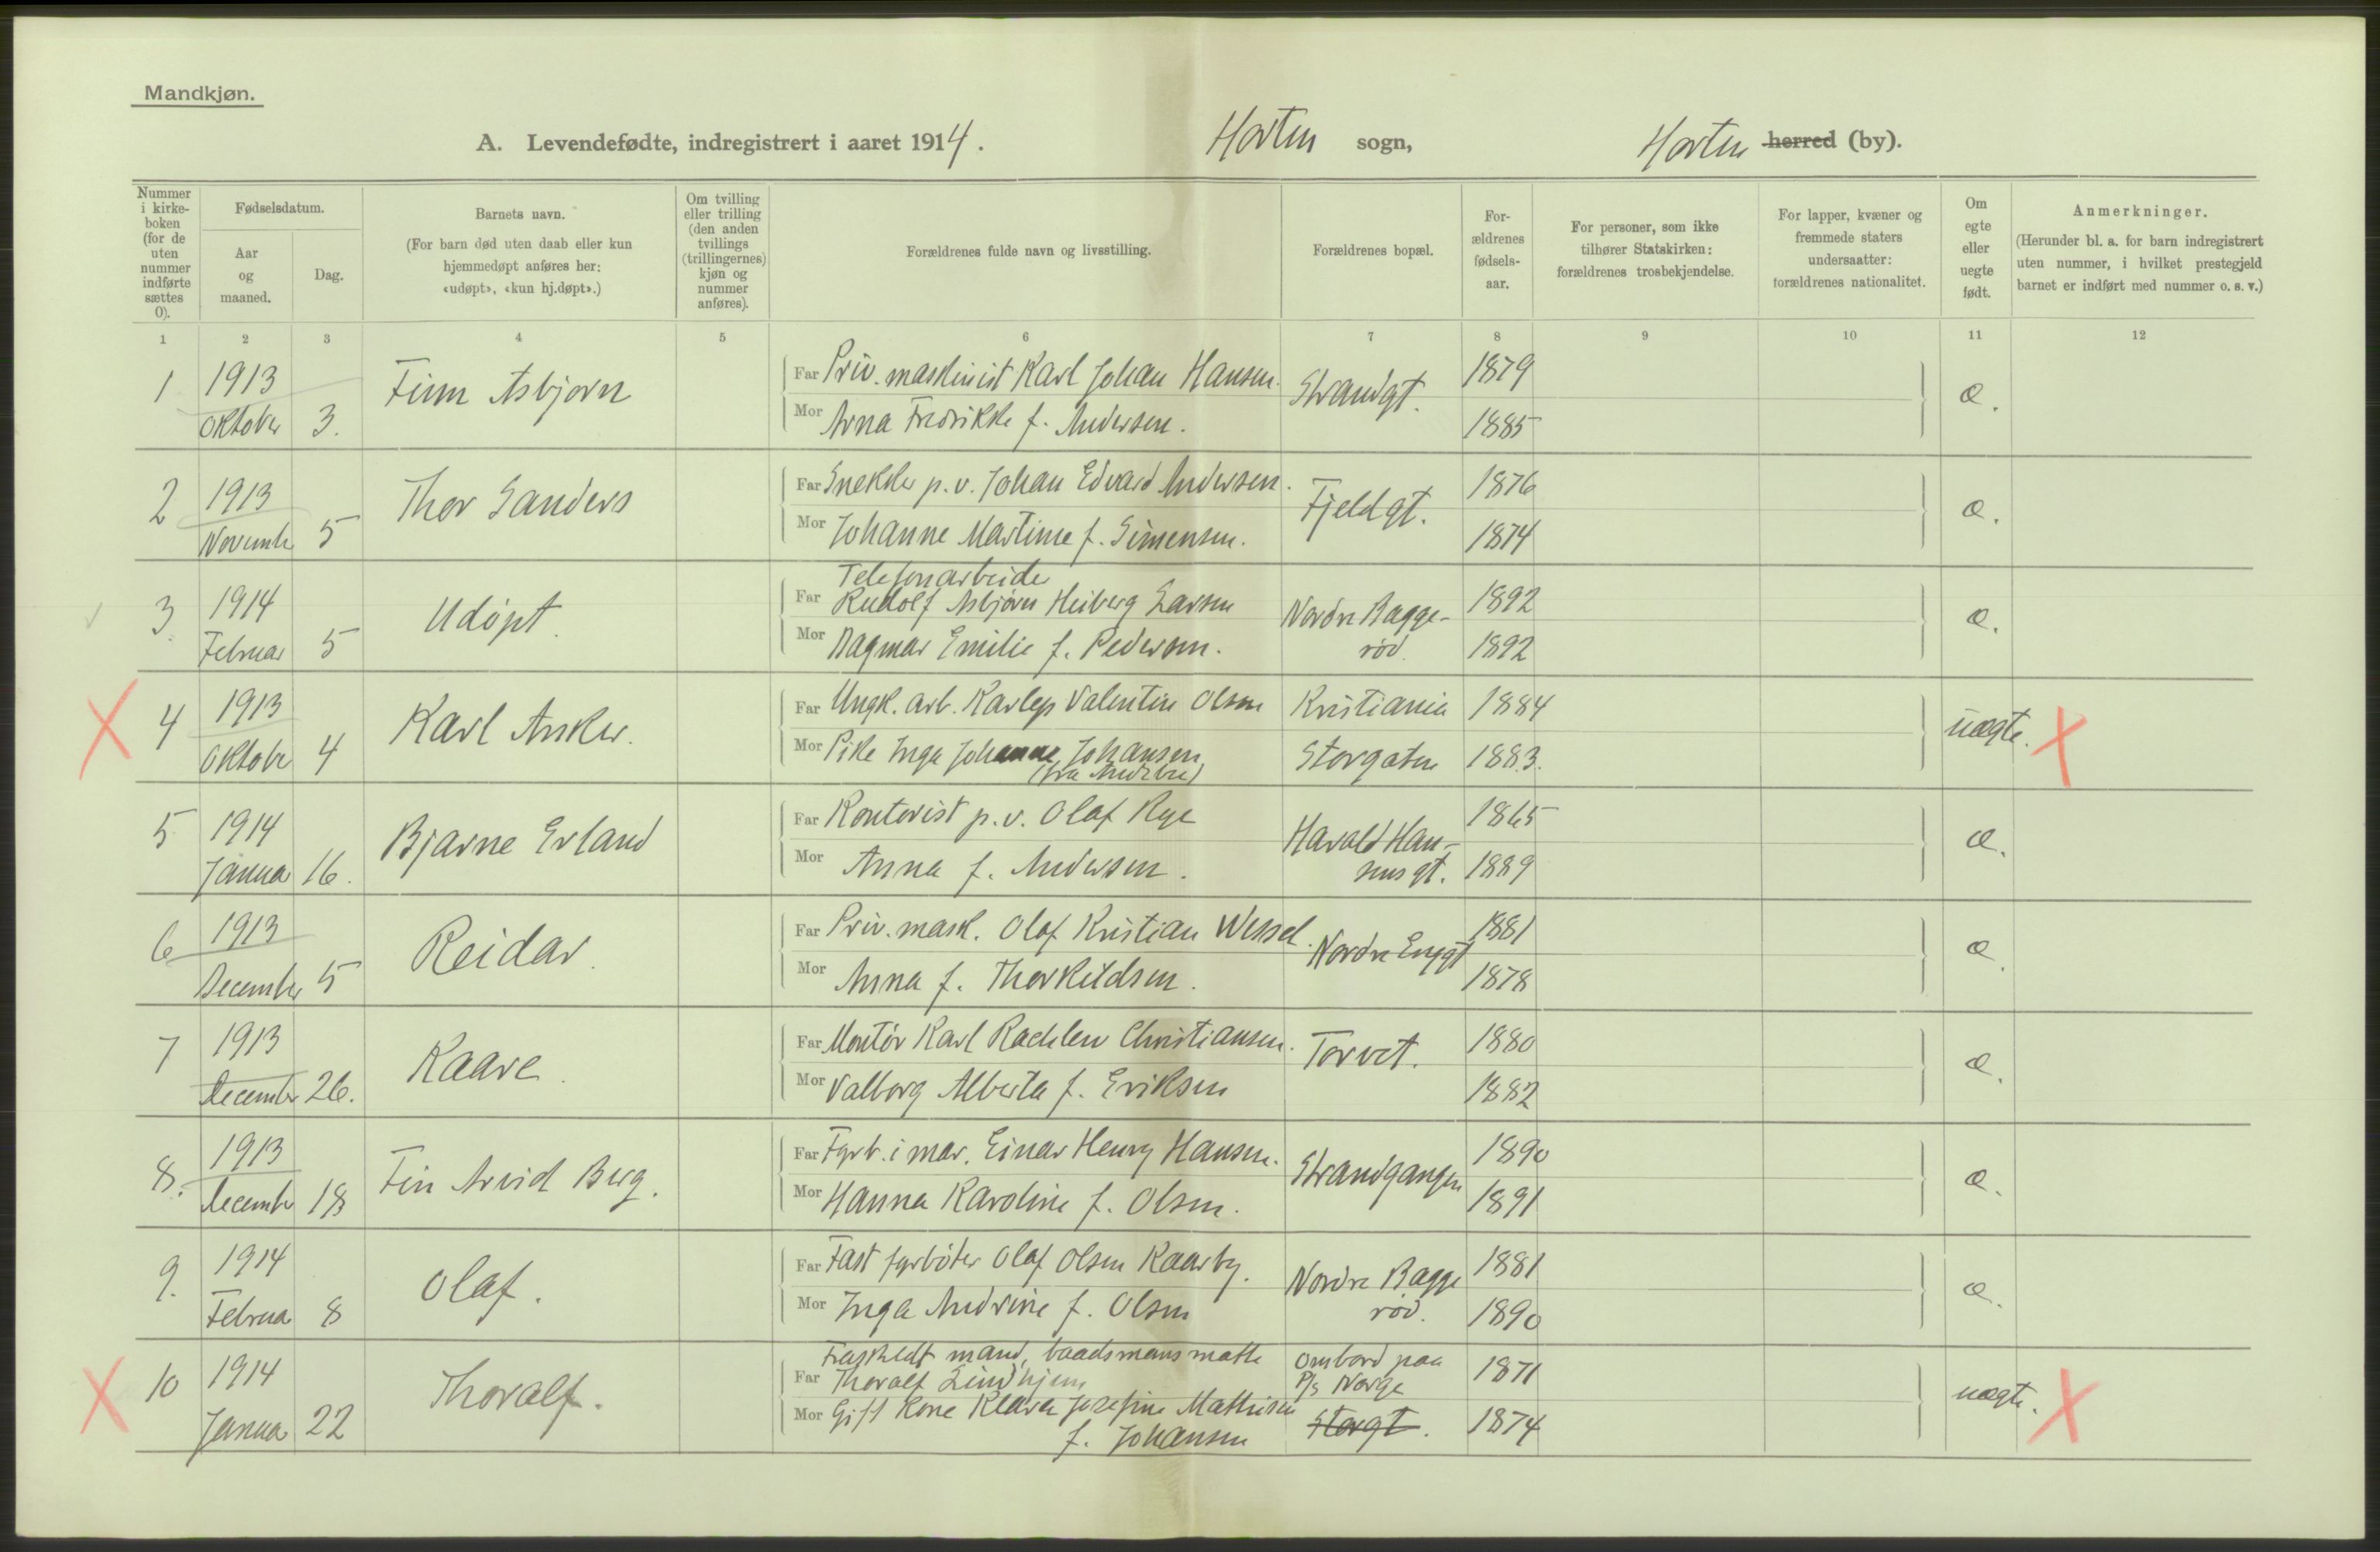 Mandkjøn.
A. Levendefødte, indregistrert i aaret 1914. Horten sogn, Horten herred (by).
Nummer i kirke-boken (for de uten nummer indførte sættes 0).
Fødselsdatum.
Aar og maaned.
Dag.
Barnets navn.
(For barn død uten daab eller kun hjemmedøpt anføres her: «udøpt», «kun hj.døpt».)
Om tvilling eller trilling (den anden tvillings (trillingernes) kjøn og nummer anføres).
Forældrenes fulde navn og livsstilling.
Forældrenes bopæl.
For-ældrenes fødsels-aar.
For personer, som ikke tilhører Statskirken: forældrenes trosbekjendelse.
For lapper, kvæner og fremmede staters undersaatter: forældrenes nationalitet.
Om egte eller uegte født.
Anmerkninger.
(Herunder bl. a. for barn indregistrert uten nummer, i hvilket prestegjeld barnet er indført med nummer o. s. v.)
1 2 3 4 5 6 7 8 9 10 11 12
1 1913 Oktober 3. Finn Asbjørn
Far Priv. maskinist Karl Johan Hansen. Strandgt. 1879 æ.
Mor Anna Fredrikke f. Andersen. 1885
2 1913 Novembr 5 Thor Sanders
Far Snekker p.v. Johan Edvard Andersen. Fjeldgt. 1876 æ.
Mor Johanne Martine f. Simensen. 1874
3. 1914 Februar 5 Udøpt.
Telefonarbeider
Far Rudolf Asbjørn Heiberg Larsen Nordre Bagge-rød. 1892 æ.
Mor Dagmar Emilie f. Pedersen. 1892
4 1913 Oktobr 4 Karl Ansker.
Far Ungk. arb. Valentin Olsen Kristiania 1884 uægte.
Mor Pike Inga Johanne Johansen Storgaten 1883.
5 1914 Januar 16. Bjarne Erland
Far Kontorist p.v. Olaf Rye Harald Han-sens gt. 1865 æ.
Mor Anna f. Andersen. 1889
6 1913 December 5 Reidar.
Far Priv. mask. Olaf Kristian Wessel. Nordre Enggt 1881 æ.
Mor Anna f. Thorkildsen. 1878
7 1913 December 26. Kaare.
Far Montør Karl Christiansen. Torvet. 1880 æ.
Mor Valborg Alberta f. Eriksen 1882
8. 1913 December 18 Fin Arvid Berg.
Far Fyrb. i mar. Einar Henry Hansen. Strandgangen 1890 æ.
Mor Hanna Karoline f. Olsen. 1891
9. 1914 Februar 8 Olaf.
Far Fast fyrbøter Olaf Olsen Kaarby. Nordre Bagge rød. 1881 æ.
Mor Inga Andrine f. Olsen 1890
10 1914 Januar 22 Thoralf.
Fraskildt mand, baadsmans matte Ombord paa
Far Thoralf Lindhjem P/s Norge 1871 uægte.
Mor Gift kone Klara Josefine Mathisen Storgt. 1874
f. Johansen